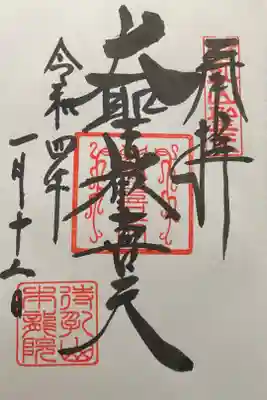 奉拝
大聖歓喜天
令和四年
一月十二日
待乳山
本龍院